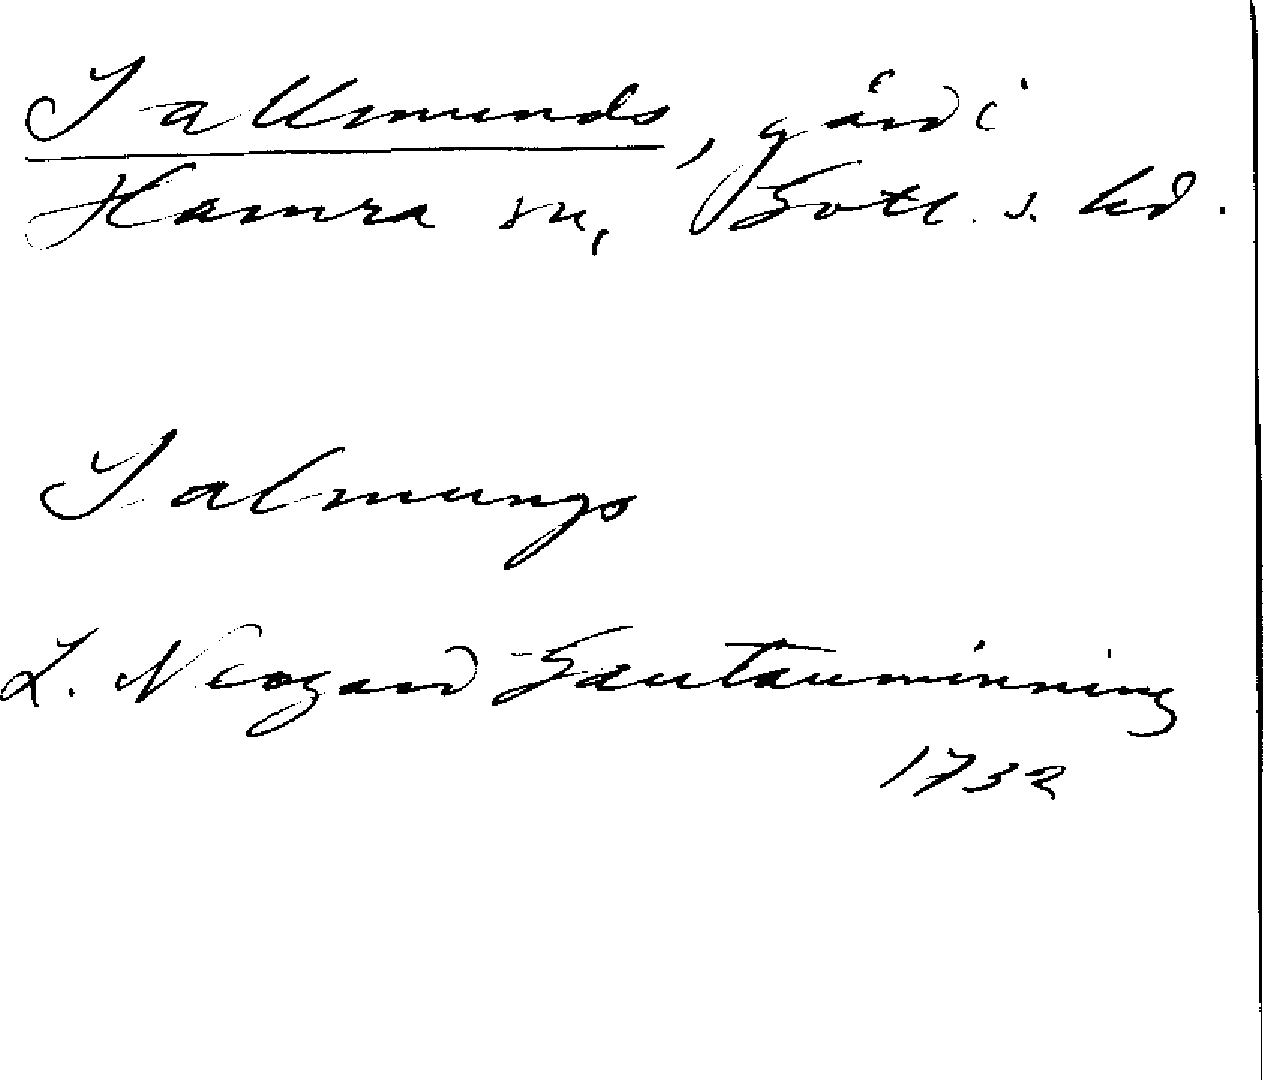 Tallmunds, gård i
Hamra sn, Gotl. s. hd.
Talmungs
L. Neogard Gautauminning
1732